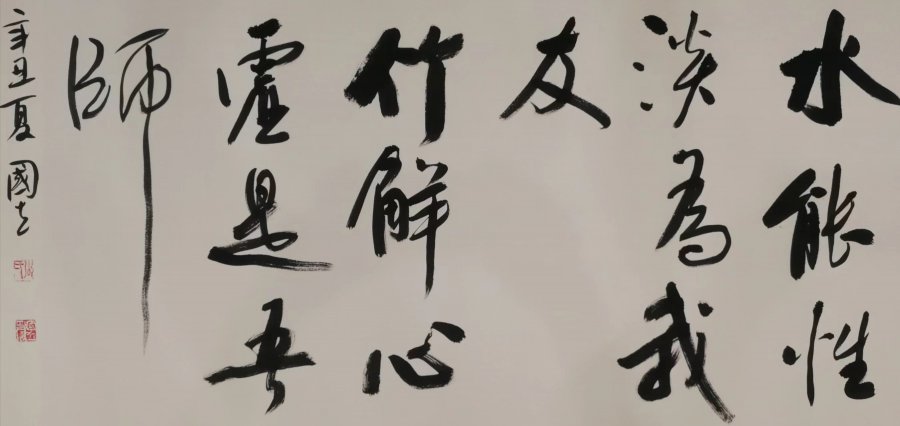 水能性
淡為我
友
竹解心
虛是吾
師
辛丑夏國立